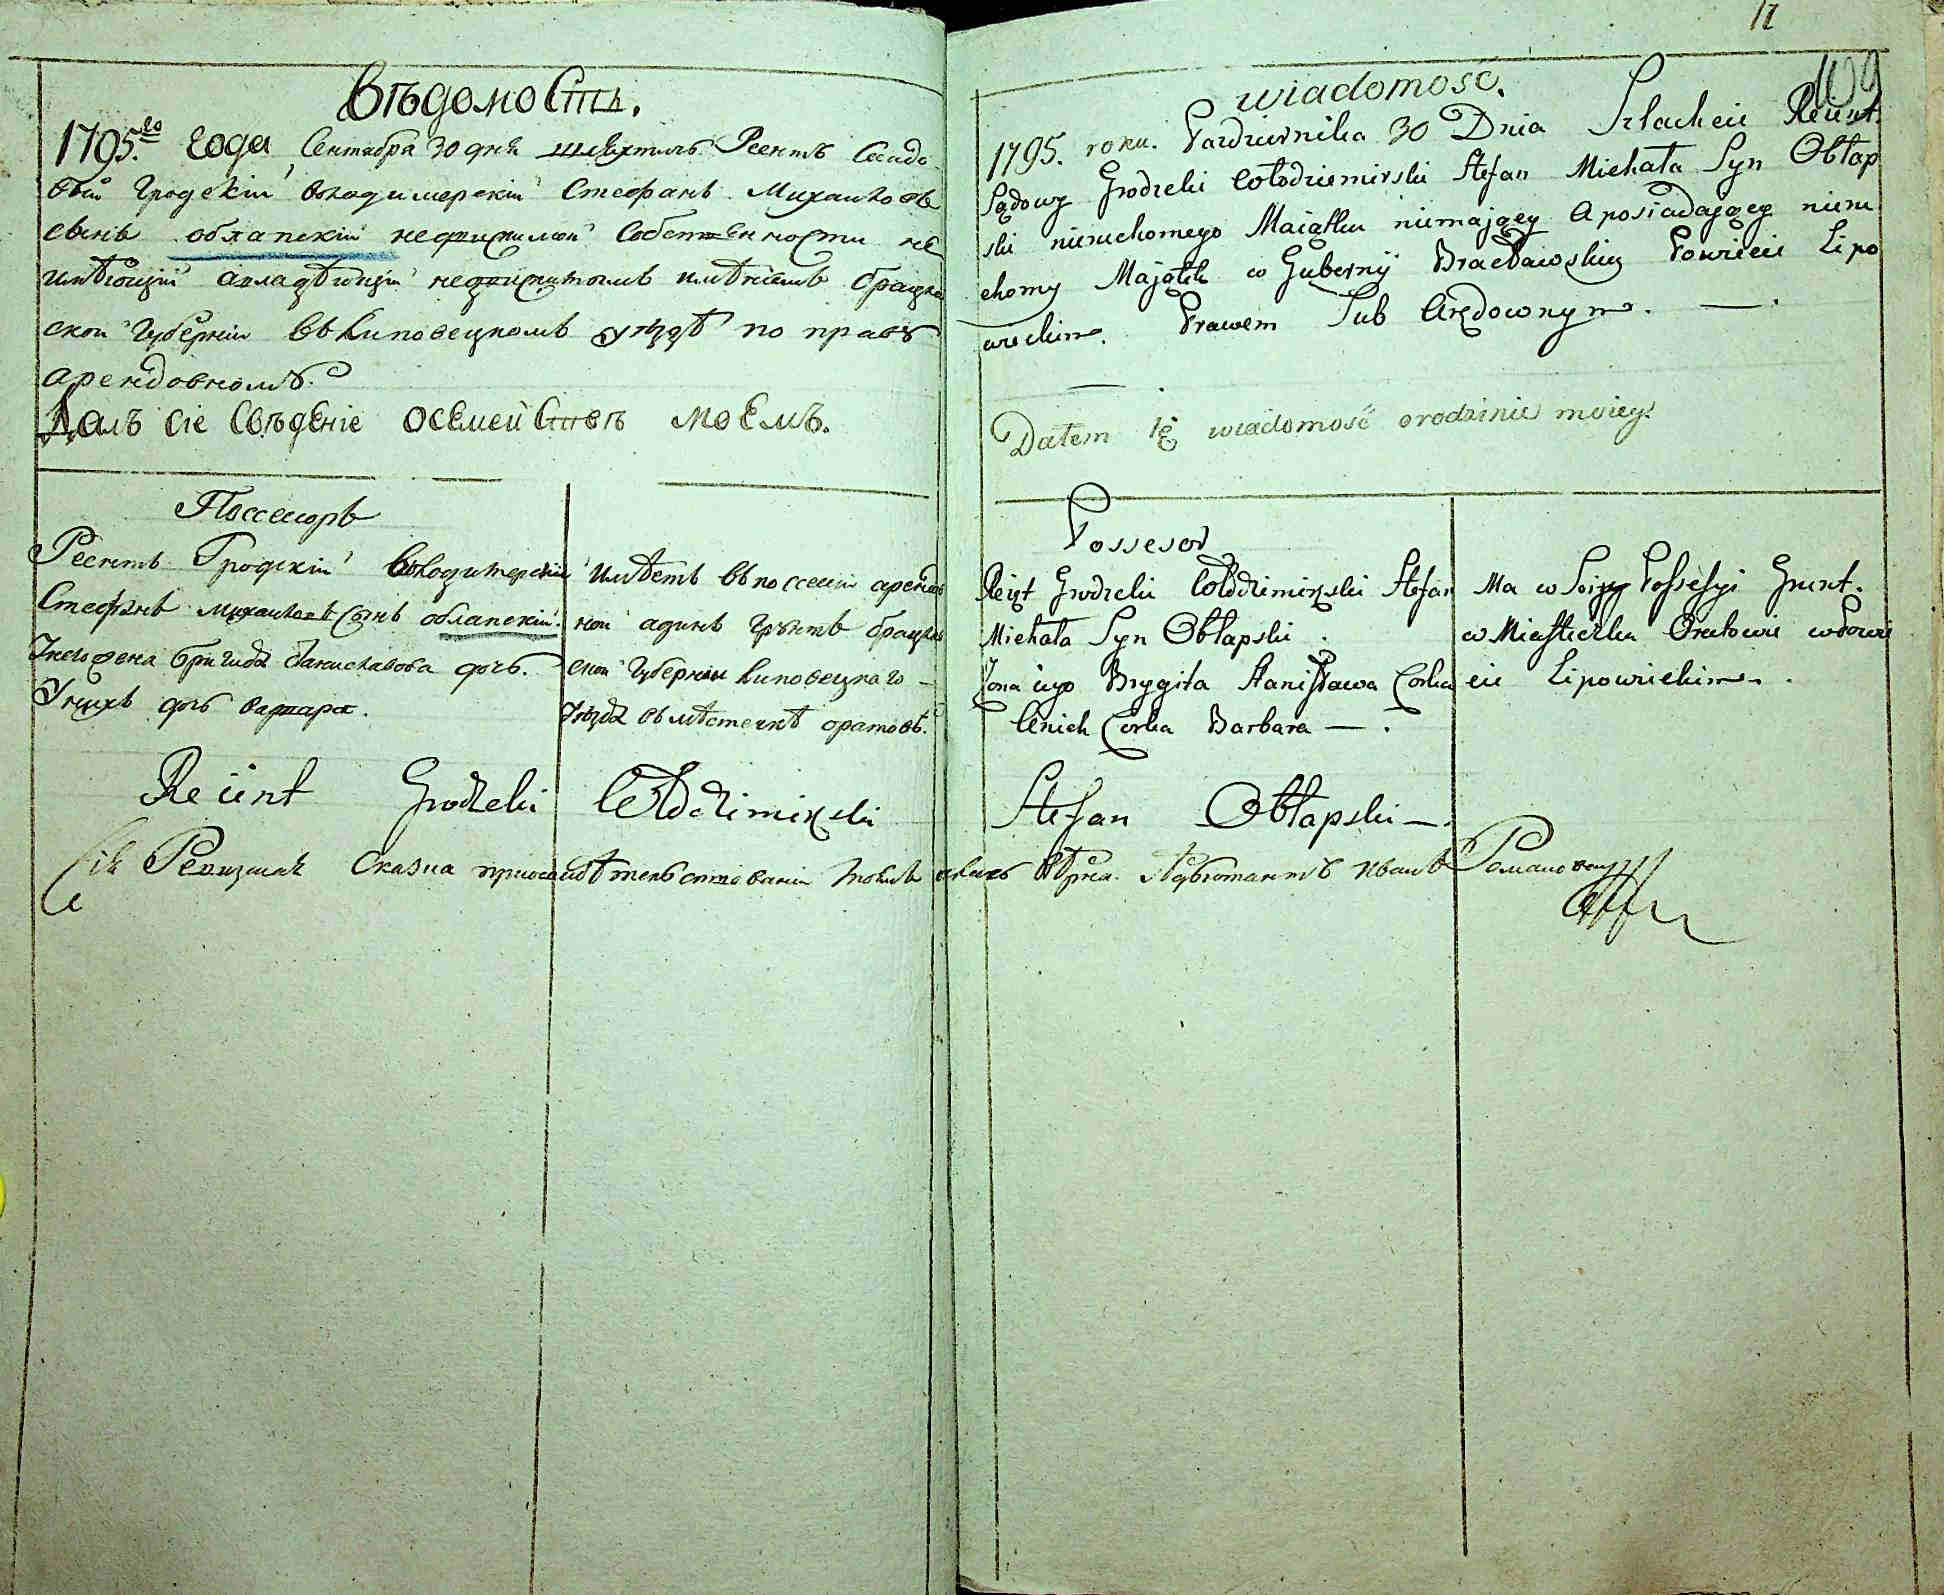 Вѣдомость.
1795.го года Сентября 30 дня шляхтичъ Реентъ Суадо
вый Гродскій володимерскій Стефанъ Михайловъ
сынъ облапскій недвижимой Собственности не
имѣющій авладѣющій недвижимымъ имѣніемъ брацла
ской Губерніи въ Липовецкомъ уездѣ по праву
арендовномъ.
Далъ сіе Свѣденіе осемействѣ моемъ.
Поссесоръ
Реентъ Гродскій Володимерскій
Стефанъ Михайловъ Сынъ облапскій.
Унего жена бригида Станиславова дочь.
Унихъ дочь варвара.
имѣетъ въ поссесіи арендов
ной адинъ грунтъ брацлав
ской Губерніи Липовецкаго
Уезда въ мѣстечкѣ оратовѣ.
17
109
wiadomość.
1795. roku. Pazdziernika 30 Dnia Szlachcic Reient
Sądowy Grodzki Włodziemirski Stefan Michała Syn Obłap
ski nieruchomego Maiątku niemaiący a posiadaiący nieru
chomy Maiątek w Gubernij Bracławskiey Powiecie Lipo
wieckim. Prawem Sub Arędownym.
Dałem tę wiadomość orodzinie moiey.
Possesor
Reient Grodzki Włodzimirski Stefan
Michała Syn Obłapski.
Zona iego Brygita Stanisława Corka
Unich Corka Barbara —.
Ma w Possesyi Grunt.
w Miasteczku Oratowie w Powie
cie Lipowieckim.
Reient Grodzki Włodzimirski Stefan Obłapski —.
Сія Ревизская Сказка приосвидѣтельствованіи вѣрна. Адьютантъ Иванъ Романовскій